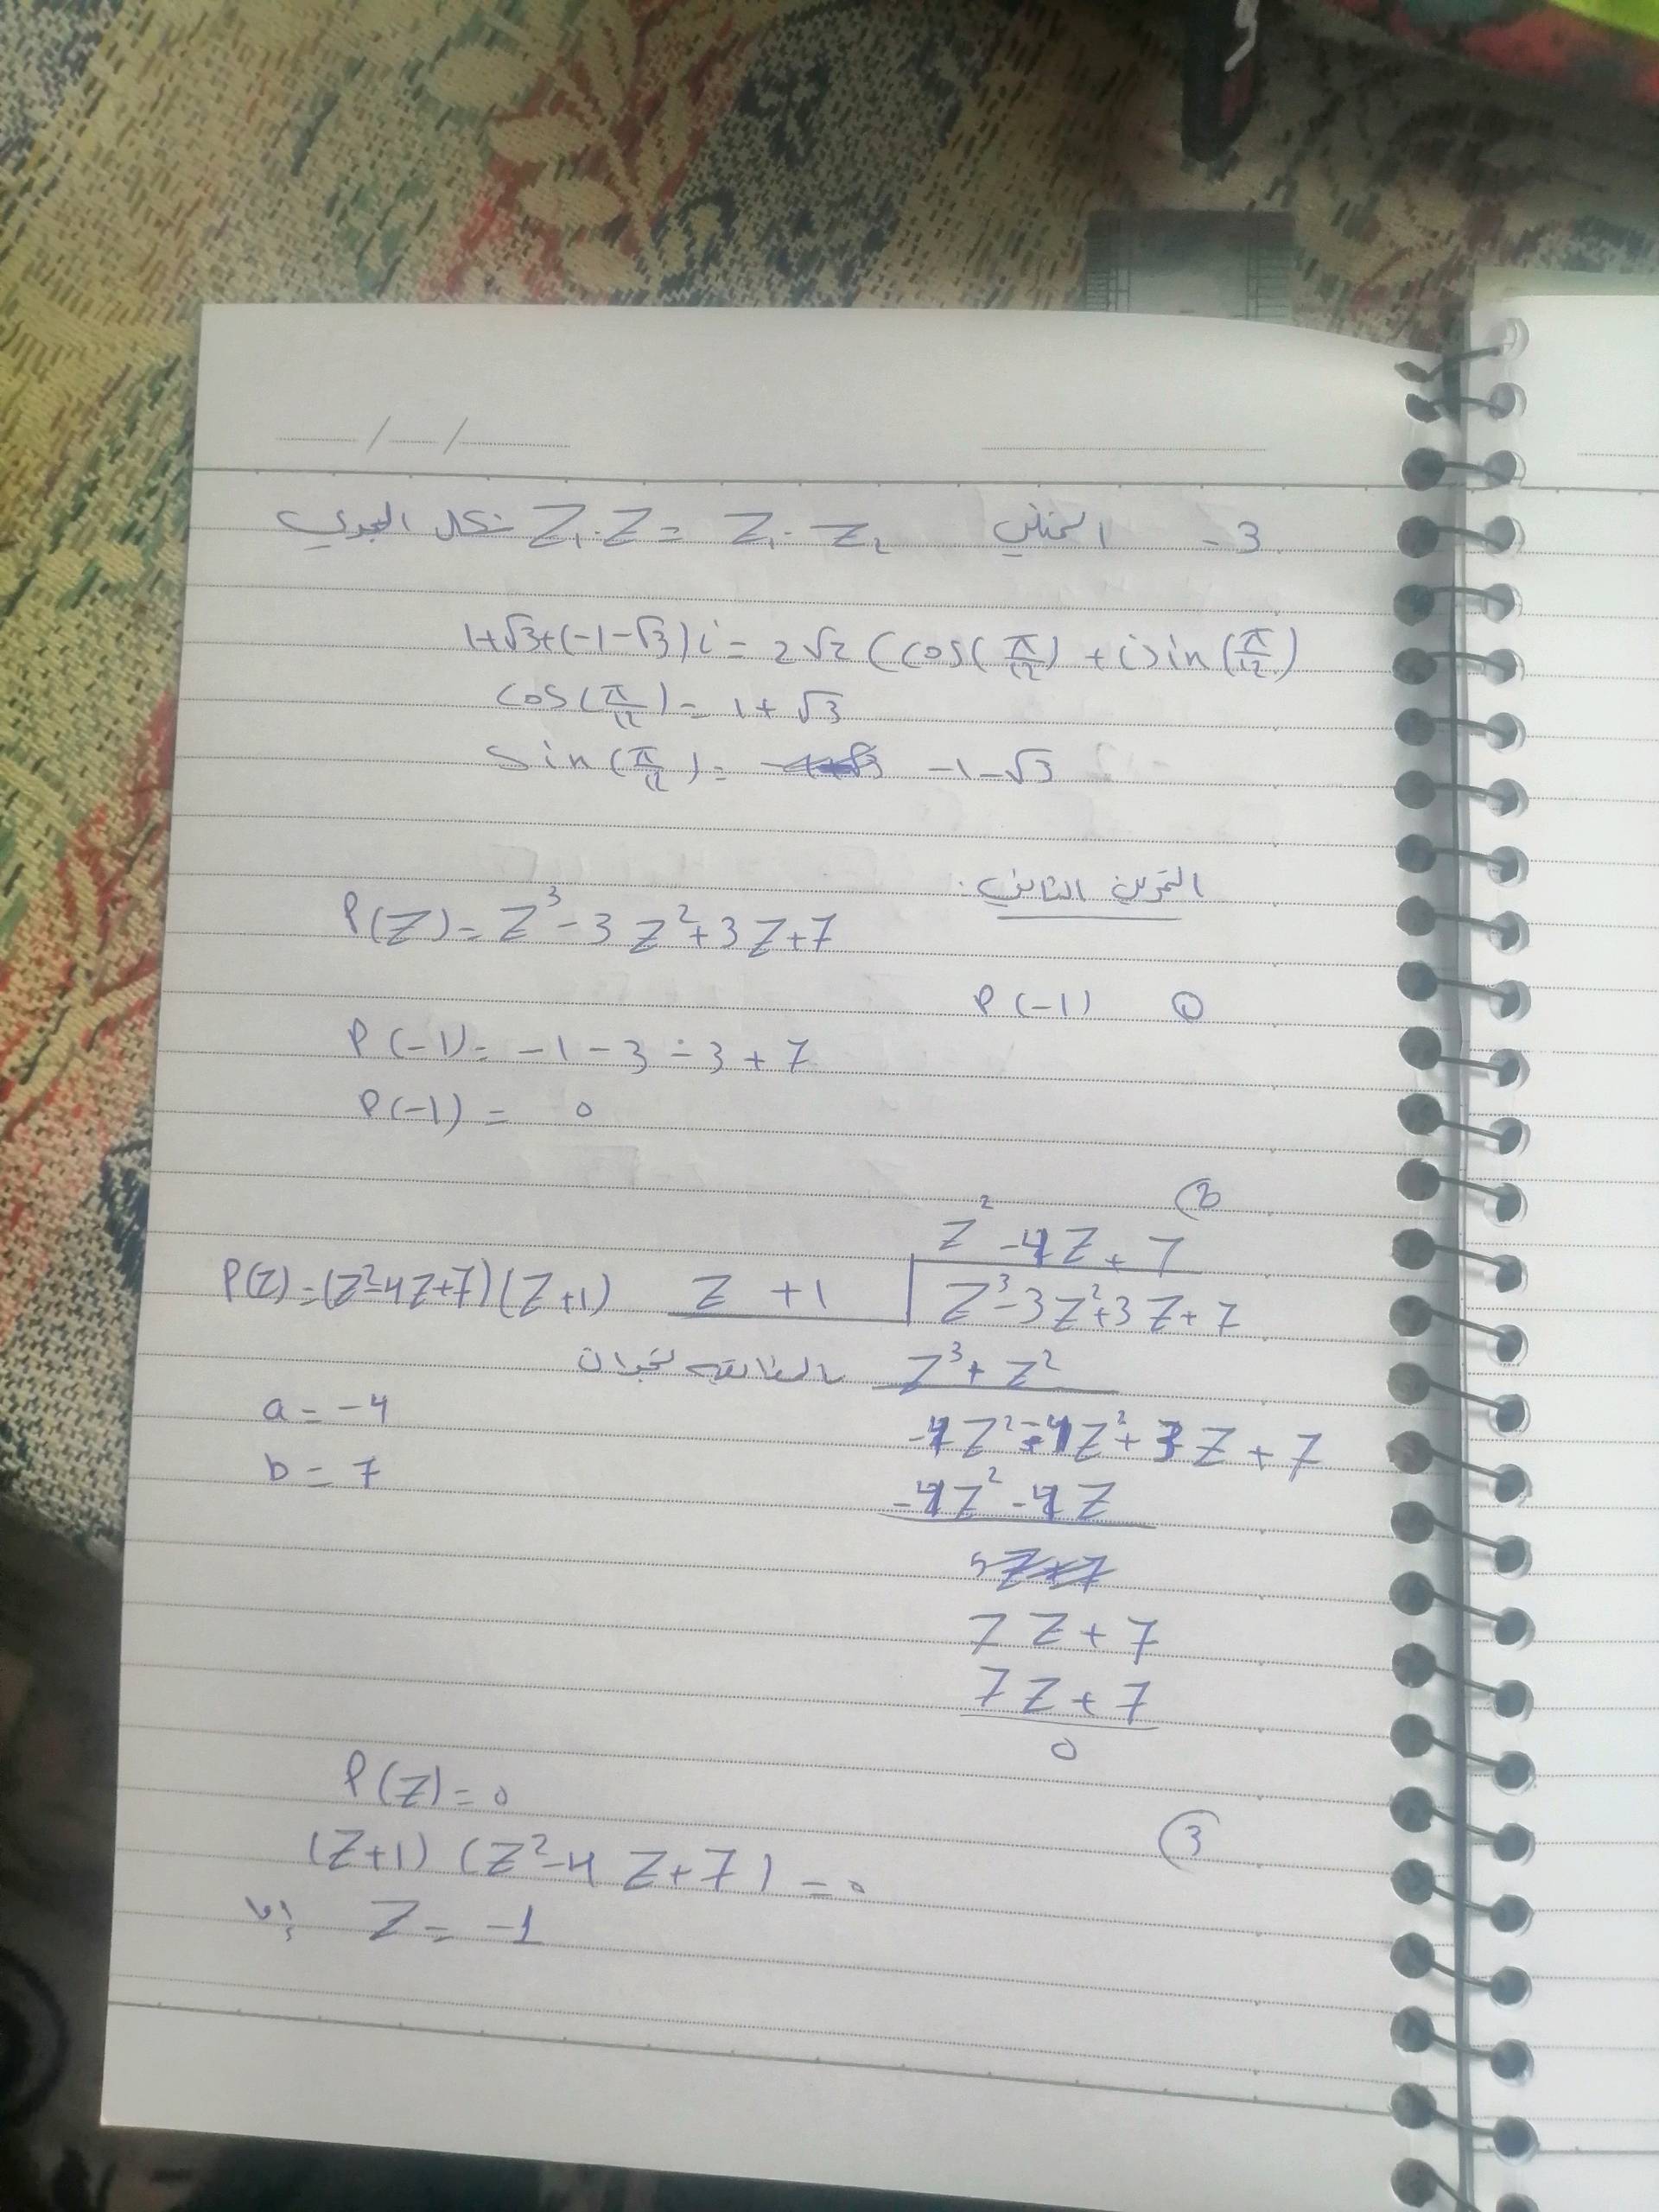 3 - المثلثي Z₁.Z₂ = Z₁.Z شكل الجبري
1+√3+(-1-√3)i = 2√2 (cos(π/12) + i sin(π/12)
cos(π/12) = 1+√3
sin(π/12) = -1-√3
التمرين الثاني:
P(Z) = Z³-3Z²+3Z+7
① P(-1)
P(-1) = -1-3-3+7
P(-1) = 0
②
Z²-4Z+7
P(Z) = (Z²-4Z+7)(Z+1)
Z+1
Z³-3Z²+3Z+7
Z³+Z²
بالمطابقة نجد أن
a = -4
-4Z²+3Z+7
b = 7
-4Z²-4Z
7Z+7
7Z+7
0
P(Z) = 0
③
(Z+1)(Z²-4Z+7) = 0
إما Z = -1